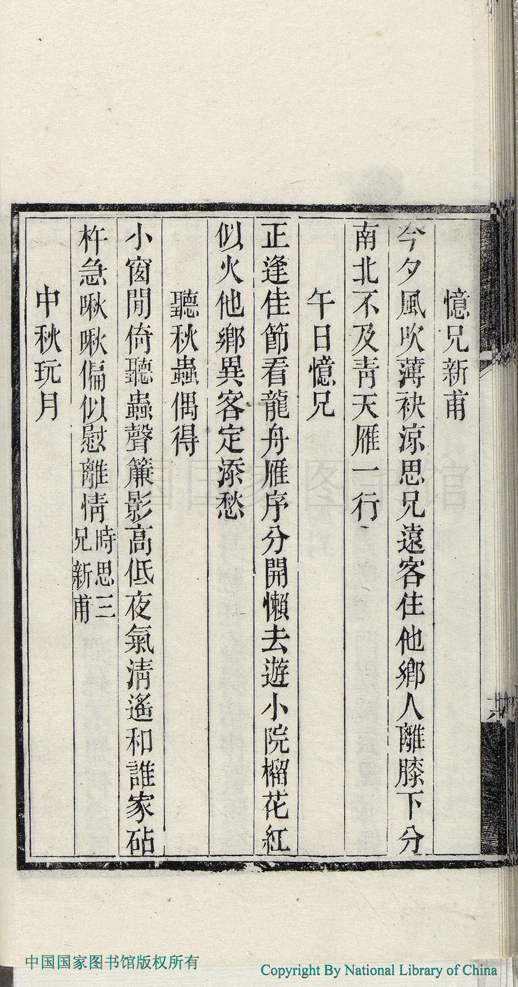 憶兄新甫
今夕風吹薄袂涼思兄遠客住他鄉人離膝下分
南北不及靑天雁一行
午日憶兄
正逢佳節看龍舟雁序分開懶去遊小院榴花紅
似火他鄉異客定添愁
聽秋蟲偶得
小窗閒倚聽蟲聲簾影高低夜氣淸遙和誰家砧
杵急啾啾偏似慰離情時思三兄新甫
中秋玩月
六
中国国家图书馆
中国国家图书馆版权所有
Copyright By National Library of China